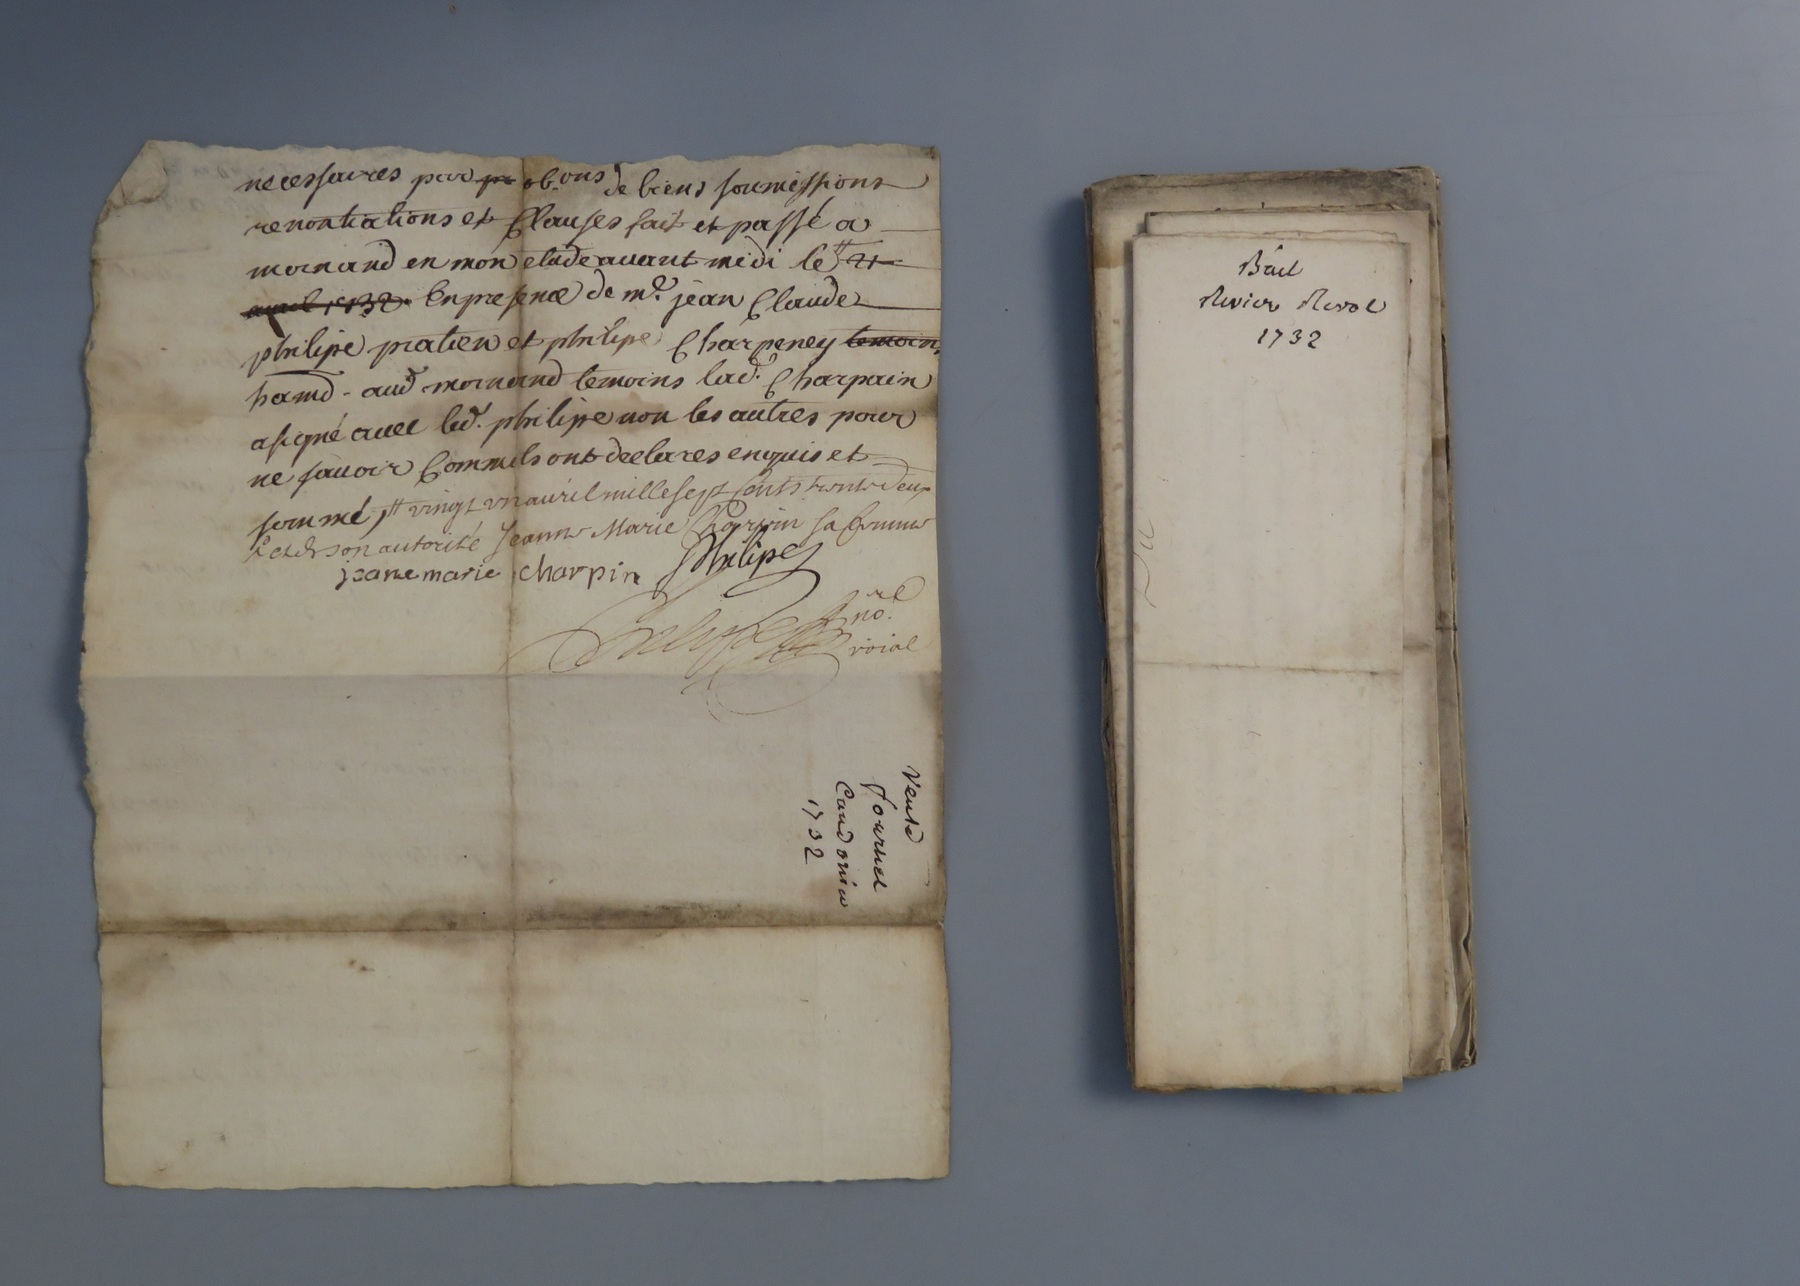 necessaires par pr ob.ons de biens soumissions
renontiations et Clauses fait et passé a
mornand en mon etude avant midi le # 21
avril 1732. En presence de mr. jean Claude
philipe pratien et philipe Charpeney temoins
hand - aud mornand temoins lad. Charpain
a signé avec led. philippe non les autres pour
ne savoir Comme ils ont declares enquis et
sommé, # vingt un avril mille sept Cents trente deux
et de son autorité Jeanne Marie Charpin sa femme
jeane marie charpin Philipe
nore
roial
Vente
fournel
1732
Bail
Rivier Revol
1732